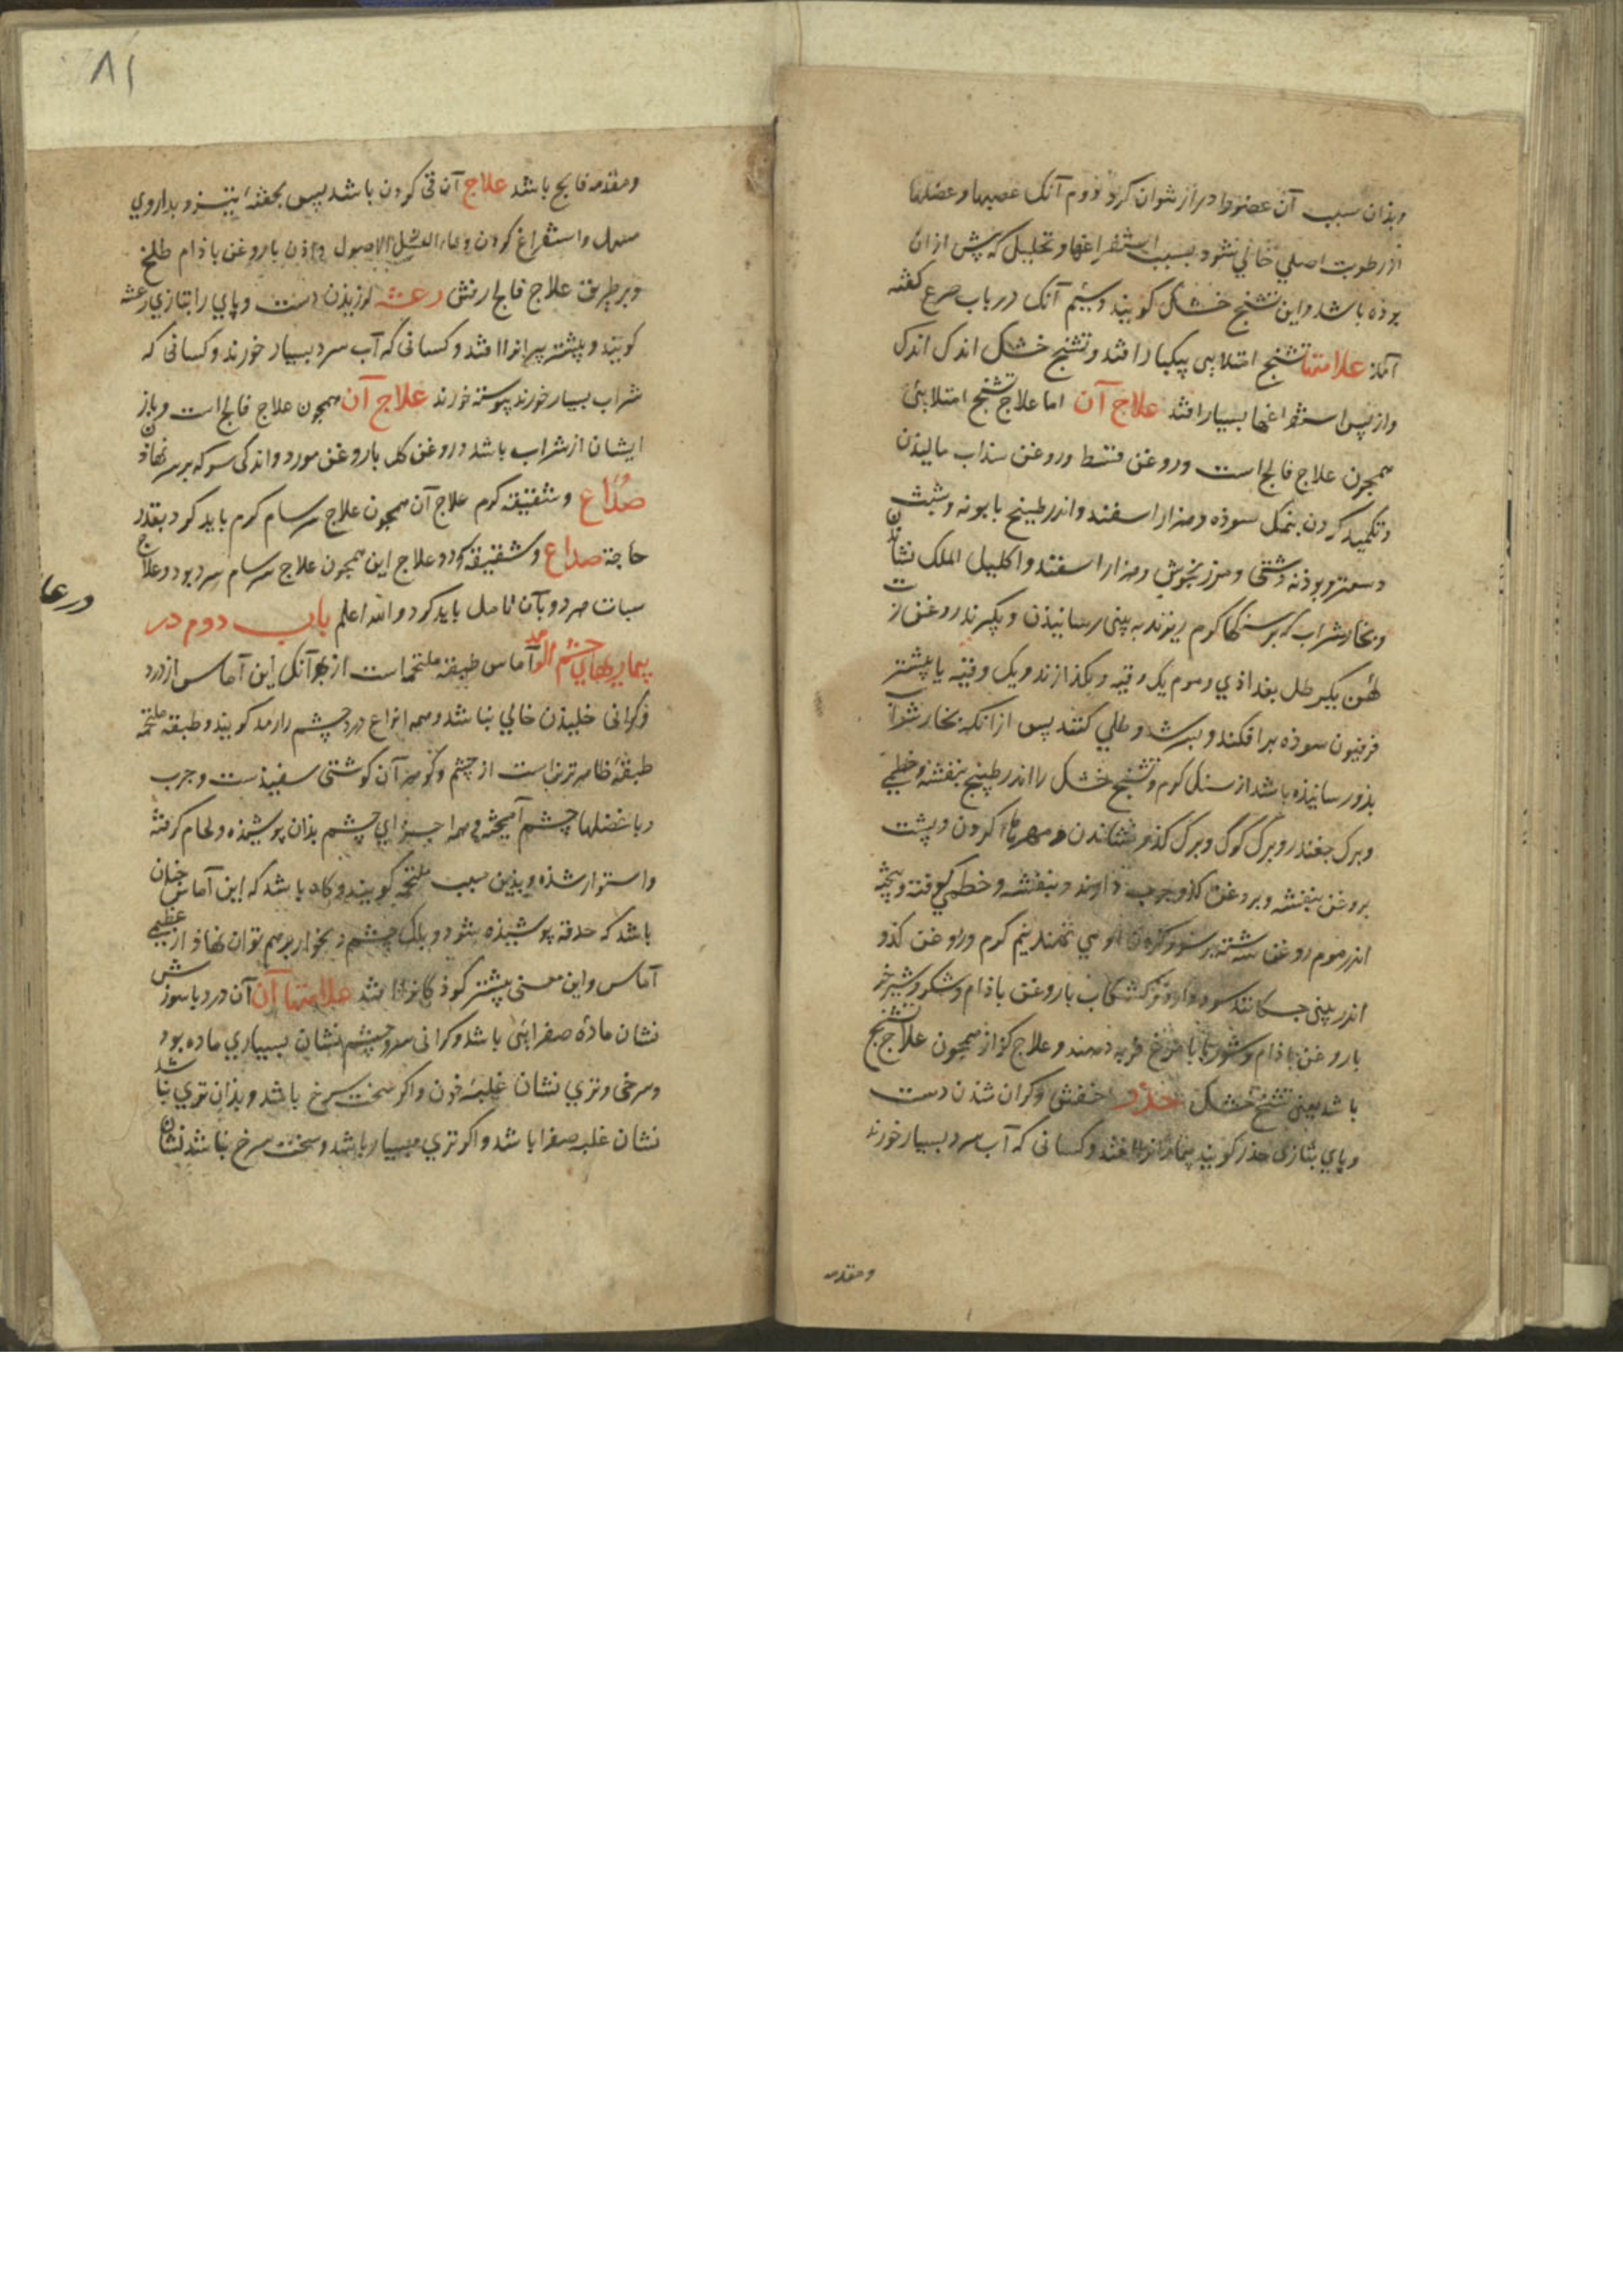 وبذان سبب آن عضو را دراز نتوان کرد دوم آنک عصبها و عضلها
از رطوبت اصلی خالی شود بسبب استفراغها و تحلیل که پش ازان
بوذه باشد و این تشنج خشک کویند و سیم آنک در باب صرع کفته
آمذ علامتها تشنج امتلایی بیکبار افتد و تشنج خشک اندک اندک
و از پس استفراغها بسیار افتد علاج آن اما علاج تشنج امتلایی
همجون علاج فالج است و روغن قسط و روغن سذاب مالیذن
و تکمید کردن بنمک سوذه و هزار اسفند و اندر طبیخ بابونه و شبث
و سعتر و بوذنه دشتی و مرزنجوش و هزار اسفند و اکلیل الملک نشاندن
و بخار شراب که بر سنکها کرم ریزند به بینی رسانیذن و بکیرند روغن زیت
کهن یک رطل بغداذی و موم یک وقیه و بکذازند و یک وقیه یا بیشتر
فرفیون سوذه برافکنند و بسرشند و طلی کنند پس ازانکه بخار شراب
بذو رسانیذه باشد از سنک کرم و تشنج خشک را اندر طبیخ بنفشه و خطمی
و برک جغندر و برک کوک و برک کذو نشاندن و مهرها کردن و پشت
بروغن بنفشه و بروغن کذو جرب دارند و بنفشه و خطمی کوفته و پخته
اندر موم روغن سرشته بر سر و کردن او می نهند نیم کرم و روغن کذو
اندر بینی جکانند سود دارد و کشکاب با روغن باذام و شکر و شیر خر
با روغن باذام و شوربا با مرغ فربه دهند و علاج کزاز همجون علاج تشنج
باشد یعنی تشنج خشک خذر خفتن و کران شذن دست
و پای بتازی خذر کویند بیمارانرا افتد و کسانی که آب سرد بسیار خورند
ومقدمه
٨١
ومقدمه فالج باشد علاج آن قی کردن باشد پس بحقنه تیز و بداروی
مسهل و استفراغ کردن و ماء العسل الاصول دادن با روغن باذام طلخ
و بر طریق علاج فالج ارفتن رعشه لرزیذن دست و پای را بتازی رعشه
کویند و بیشتر پیرانرا افتد و کسانی که آب سرد بسیار خورند و کسانی که
شراب بسیار خورند پیوسته خورند علاج آن همجون علاج فالج است و باز
ایشان از شراب باشد و روغن کل با روغن مورد و اندکی سرکه بر سر نهاذن
صداع و شقیقه کرم علاج آن همجون علاج سرسام کرم باید کرد بقدر
حاجة صداع و شقیقه کرد و علاج این همجون علاج سرسام سرد بود و علاج
سبات هر دو بآن تامل باید کرد والله اعلم باب دوم در
بیماریهای چشم الرمد آماس طبقه ملتحمه است از بهر آنک این آماس از درد
و کرانی خلیذن خالی نباشد و همه انواع درد چشم را رمد کویند و طبقه ملتحمه
طبقه ظاهر ترین است از چشم و کوهر آن کوشتی سفیذست و جرب
و با عضلها چشم آمیخته و همه اجزای چشم بذان پوشیذه و لحام کرفته
و استوار شذه و بذین سبب ملتحمه کویند و کاه باشد که این آماس جنان
باشد که حدقه پوشیذه شود و پلک چشم دخوار بر هم توان نهاذ از عظیمی
آماس و این معنی بیشتر کوذکانرا افتد علامتها آن آن درد با سوزش
نشان مادّه صفرایی باشد و کرانی سر و چشم نشان بسیاری ماده بود
و سرخی و تری نشان غلبهٔ خون و اکر سخت سرخ باشد و بذان تری نباشد
نشان غلبه صفرا باشد و اکر تری بسیار باشد و سخت سرخ نباشد نشان